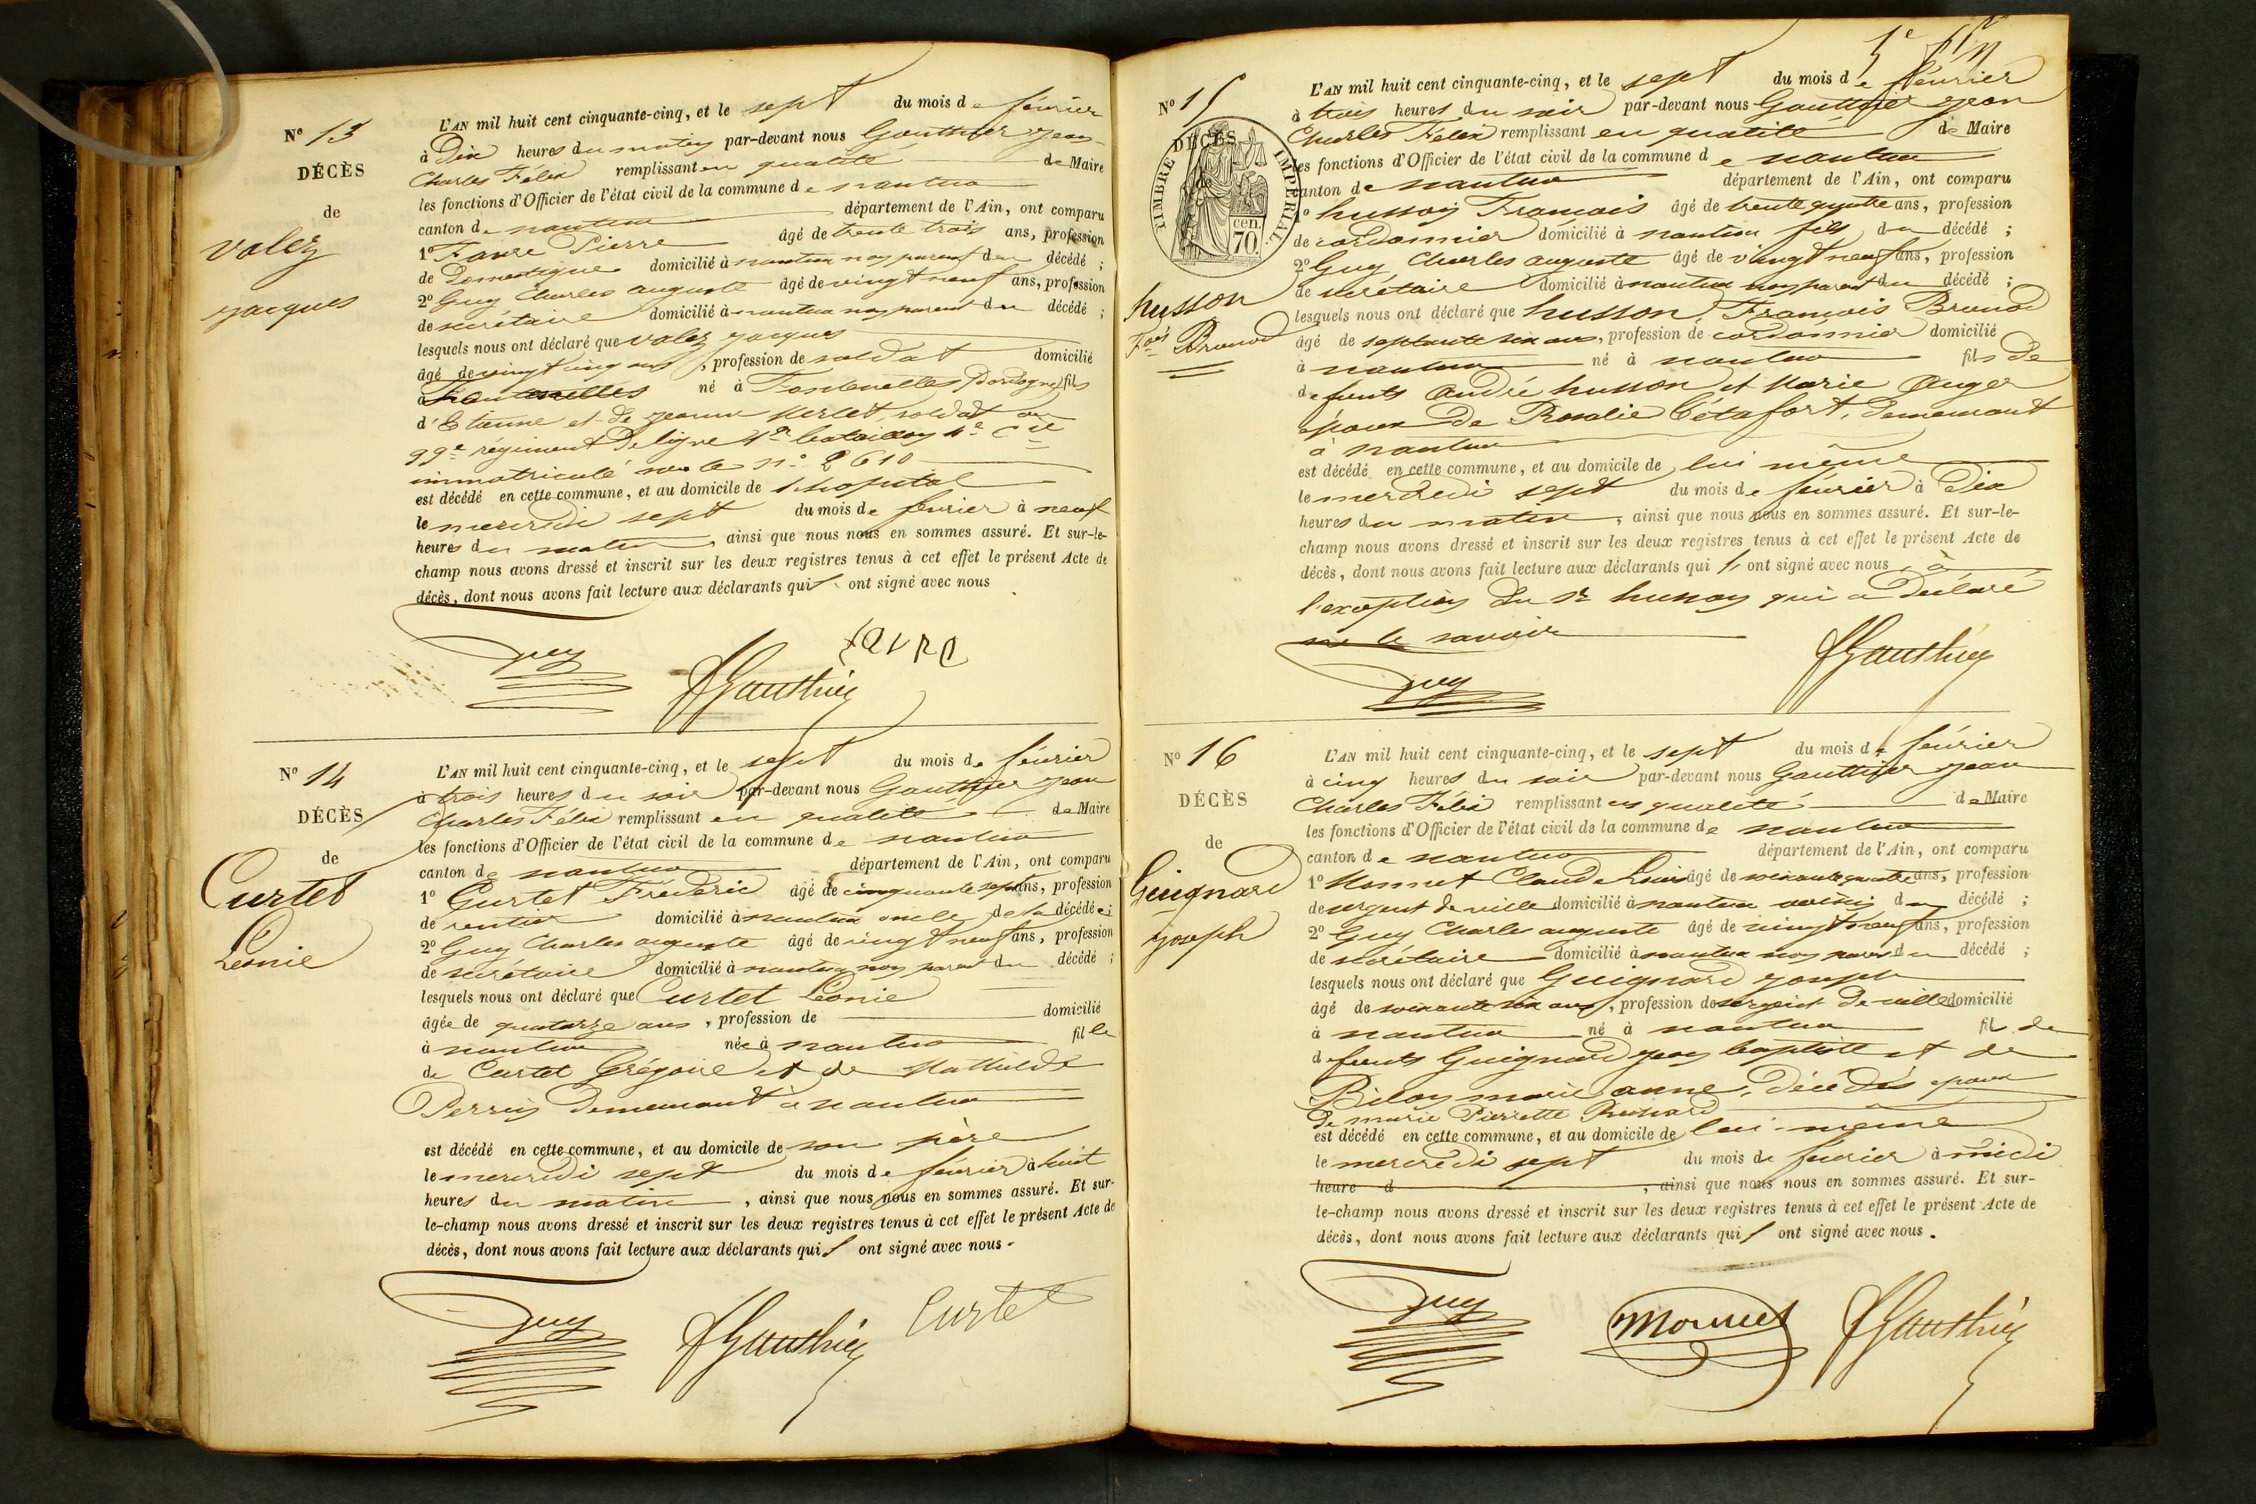 N° 13
DÉCÈS
de
Valez
Jacques
L'AN mil huit cent cinquante-cinq, et le sept du mois de février
à Dix heures du matin par-devant nous Gautthier Jean
Charles Félix remplissant en qualité de Maire
les fonctions d'Officier de l'état civil de la commune de nantua
canton de nantua département de l'Ain, ont comparu
1° Favre Pierre âgé de trente trois ans, profession
de Domestique domicilié à nantua non parent du décédé ;
2° Guy Charles auguste âgé de vingt neuf ans, profession
de secrétaire domicilié à nantua non parent du décédé ;
lesquels nous ont déclaré que valez jacques
âgé de vingt cinq ans, profession de soldat domicilié
à né à Fontenelles (Dordogne) fils
d'Etienne et de jeanne soldat au
99e régiment De ligne 4e bataillon 4e Cie
immatriculé sous le n° 2610
est décédé en cette commune, et au domicile de l'hopital
le mercredi sept du mois de février à neuf
heures du matin, ainsi que nous nous en sommes assuré. Et sur-le-
champ nous avons dressé et inscrit sur les deux registres tenus à cet effet le présent Acte de
décès, dont nous avons fait lecture aux déclarants qui ont signé avec nous
Favre
Guy
Gauthier
N° 14
DÉCÈS
de
Curtet
Léonie
L'AN mil huit cent cinquante-cinq, et le sept du mois de février
à trois heures du soir par-devant nous Gautthier Jean
Charles Félix remplissant en qualité de Maire
les fonctions d'Officier de l'état civil de la commune de nantua
canton de nantua département de l'Ain, ont comparu
1° Curtet Frédéric âgé de cinquante sept ans, profession
de rentier domicilié à nantua oncle de la décédée ;
2° Guy Charles auguste âgé de vingt neuf ans, profession
de secrétaire domicilié à nantua non parent du décédé ;
lesquels nous ont déclaré que Curtet Léonie
âgée de quatorze ans, profession de domicilié
à nantua née à nantua fille
de Curtet Grégoire et de Mathilde
Perrin Demeurant à nantua
est décédé en cette commune, et au domicile de son père
le mercredi sept du mois de février à huit
heures du matin, ainsi que nous nous en sommes assuré. Et sur-
le-champ nous avons dressé et inscrit sur les deux registres tenus à cet effet le présent Acte de
décès, dont nous avons fait lecture aux déclarants qui ont signé avec nous
Guy
Gauthier
Curtet
N° 15
DÉCÈS
de
TIMBRE IMPÉRIAL
70 cen.
husson
Fois Brunod
L'AN mil huit cent cinquante-cinq, et le sept du mois de février
à trois heures du soir par-devant nous Gautthier Jean
Charles Félix remplissant en qualité de Maire
les fonctions d'Officier de l'état civil de la commune de nantua
canton de nantua département de l'Ain, ont comparu
1° husson François âgé de trente quatre ans, profession
de cordonnier domicilié à nantua fils du décédé ;
2° Guy Charles auguste âgé de vingt neuf ans, profession
de secrétaire domicilié à nantua non parent du décédé ;
lesquels nous ont déclaré que husson François Brunod
âgé de septante six ans, profession de cordonnier domicilié
à nantua né à nantua fils De
defunts André husson et Marie Auger
époux de Rosalie Bétafort, demeurant
à nantua
est décédé en cette commune, et au domicile de lui même
le mercredi sept du mois de février à Dix
heures du matin, ainsi que nous nous en sommes assuré. Et sur-le-
champ nous avons dressé et inscrit sur les deux registres tenus à cet effet le présent Acte de
décès, dont nous avons fait lecture aux déclarants qui ont signé avec nous, à
l'exception du Sr husson qui a déclaré
ne le savoir
Guy
Gauthier
N° 16
DÉCÈS
de
Guignard
Joseph
L'AN mil huit cent cinquante-cinq, et le sept du mois de février
à cinq heures du soir par-devant nous Gautthier Jean
Charles Félix remplissant en qualité de Maire
les fonctions d'Officier de l'état civil de la commune de nantua
canton de nantua département de l'Ain, ont comparu
1° Monnet Claude Louis âgé de soixante quatre ans, profession
de sergent de ville domicilié à nantua voisin du décédé ;
2° Guy Charles auguste âgé de vingt neuf ans, profession
de secrétaire domicilié à nantua non parent du décédé ;
lesquels nous ont déclaré que Guignard Joseph
âgé de soixante six ans, profession de sergent de ville domicilié
à nantua né à nantua fils de
defunts Guignard jean baptiste et de
marie anne, décédés époux
de marie Pierrette
est décédé en cette commune, et au domicile de lui-même
le mercredi sept du mois de février à midi
heure d , ainsi que nous nous en sommes assuré. Et sur-
le-champ nous avons dressé et inscrit sur les deux registres tenus à cet effet le présent Acte de
décès, dont nous avons fait lecture aux déclarants qui ont signé avec nous.
Guy
Monnet
Gauthier